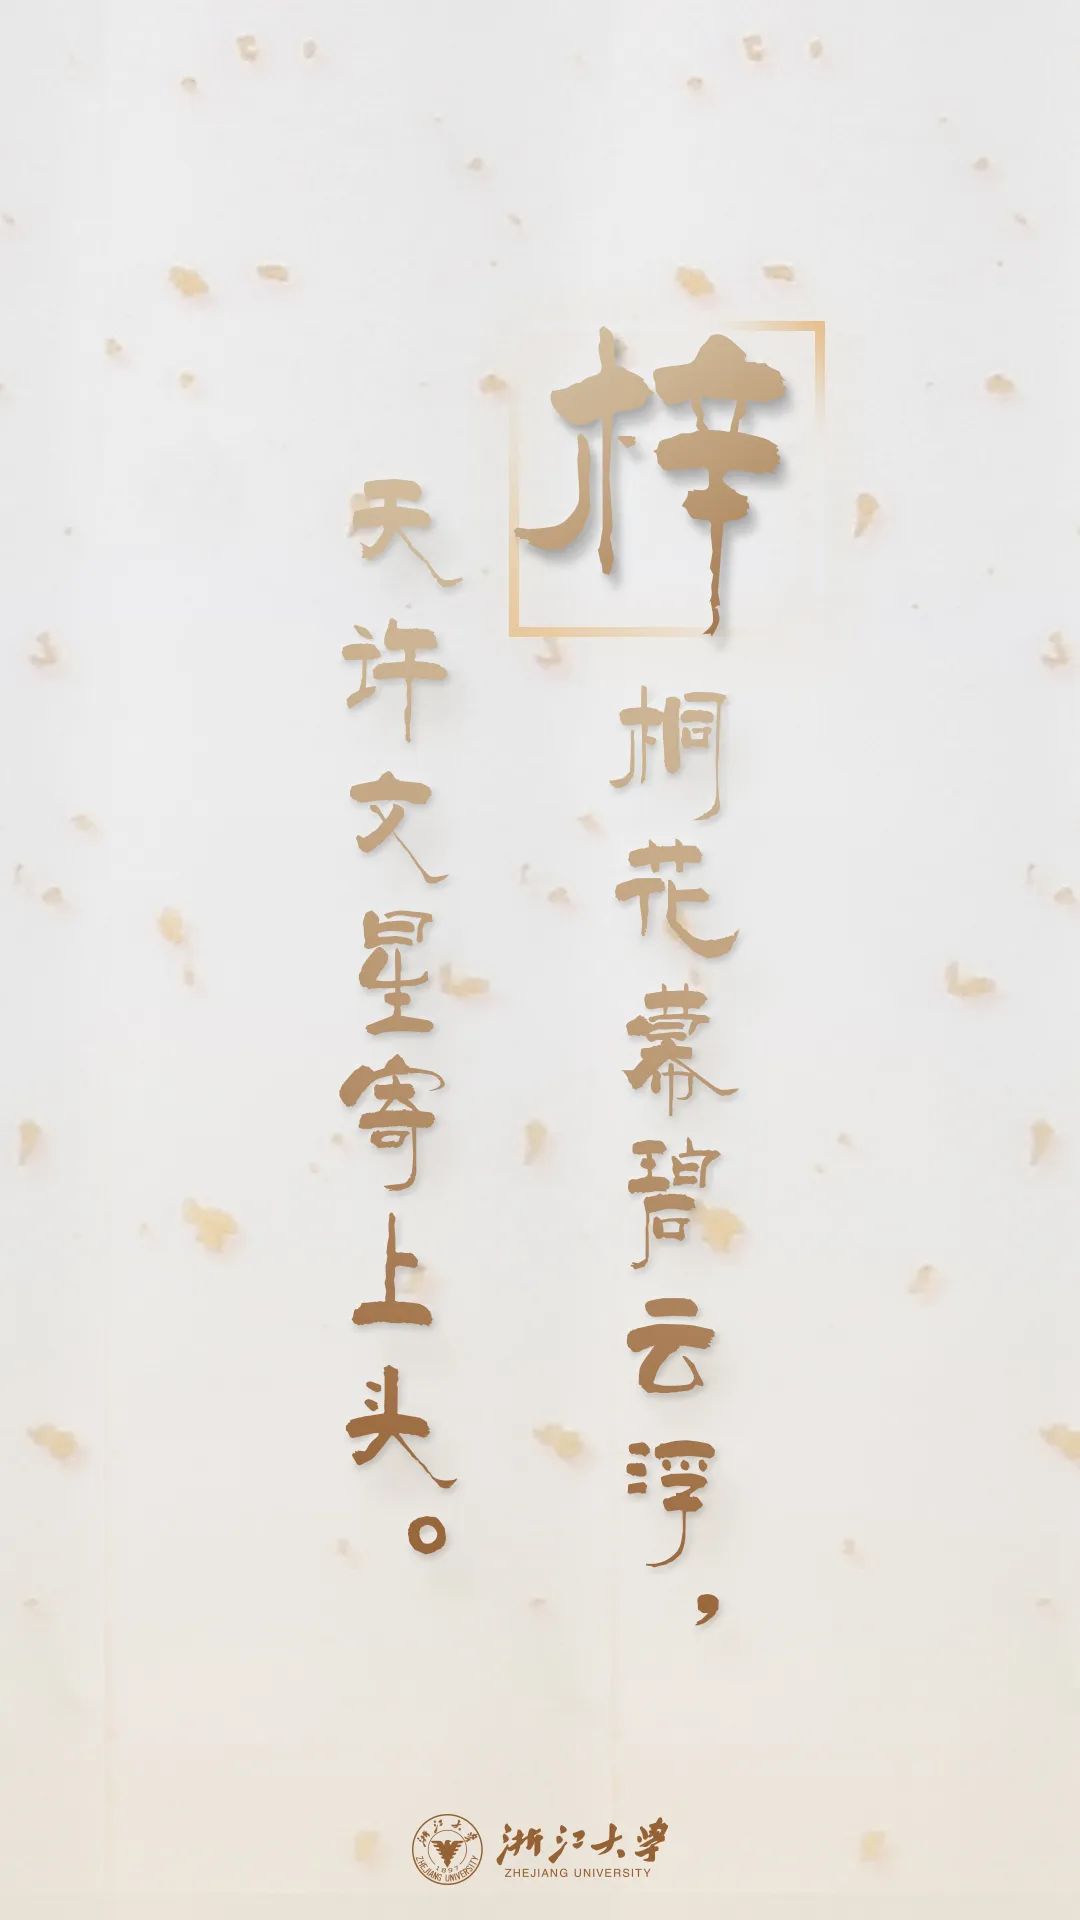 梓桐花幕碧云浮，
天许文星寄上头。
浙江大学
ZHEJIANG UNIVERSITY
浙江大学
1897
ZHEJIANG UNIVERSITY